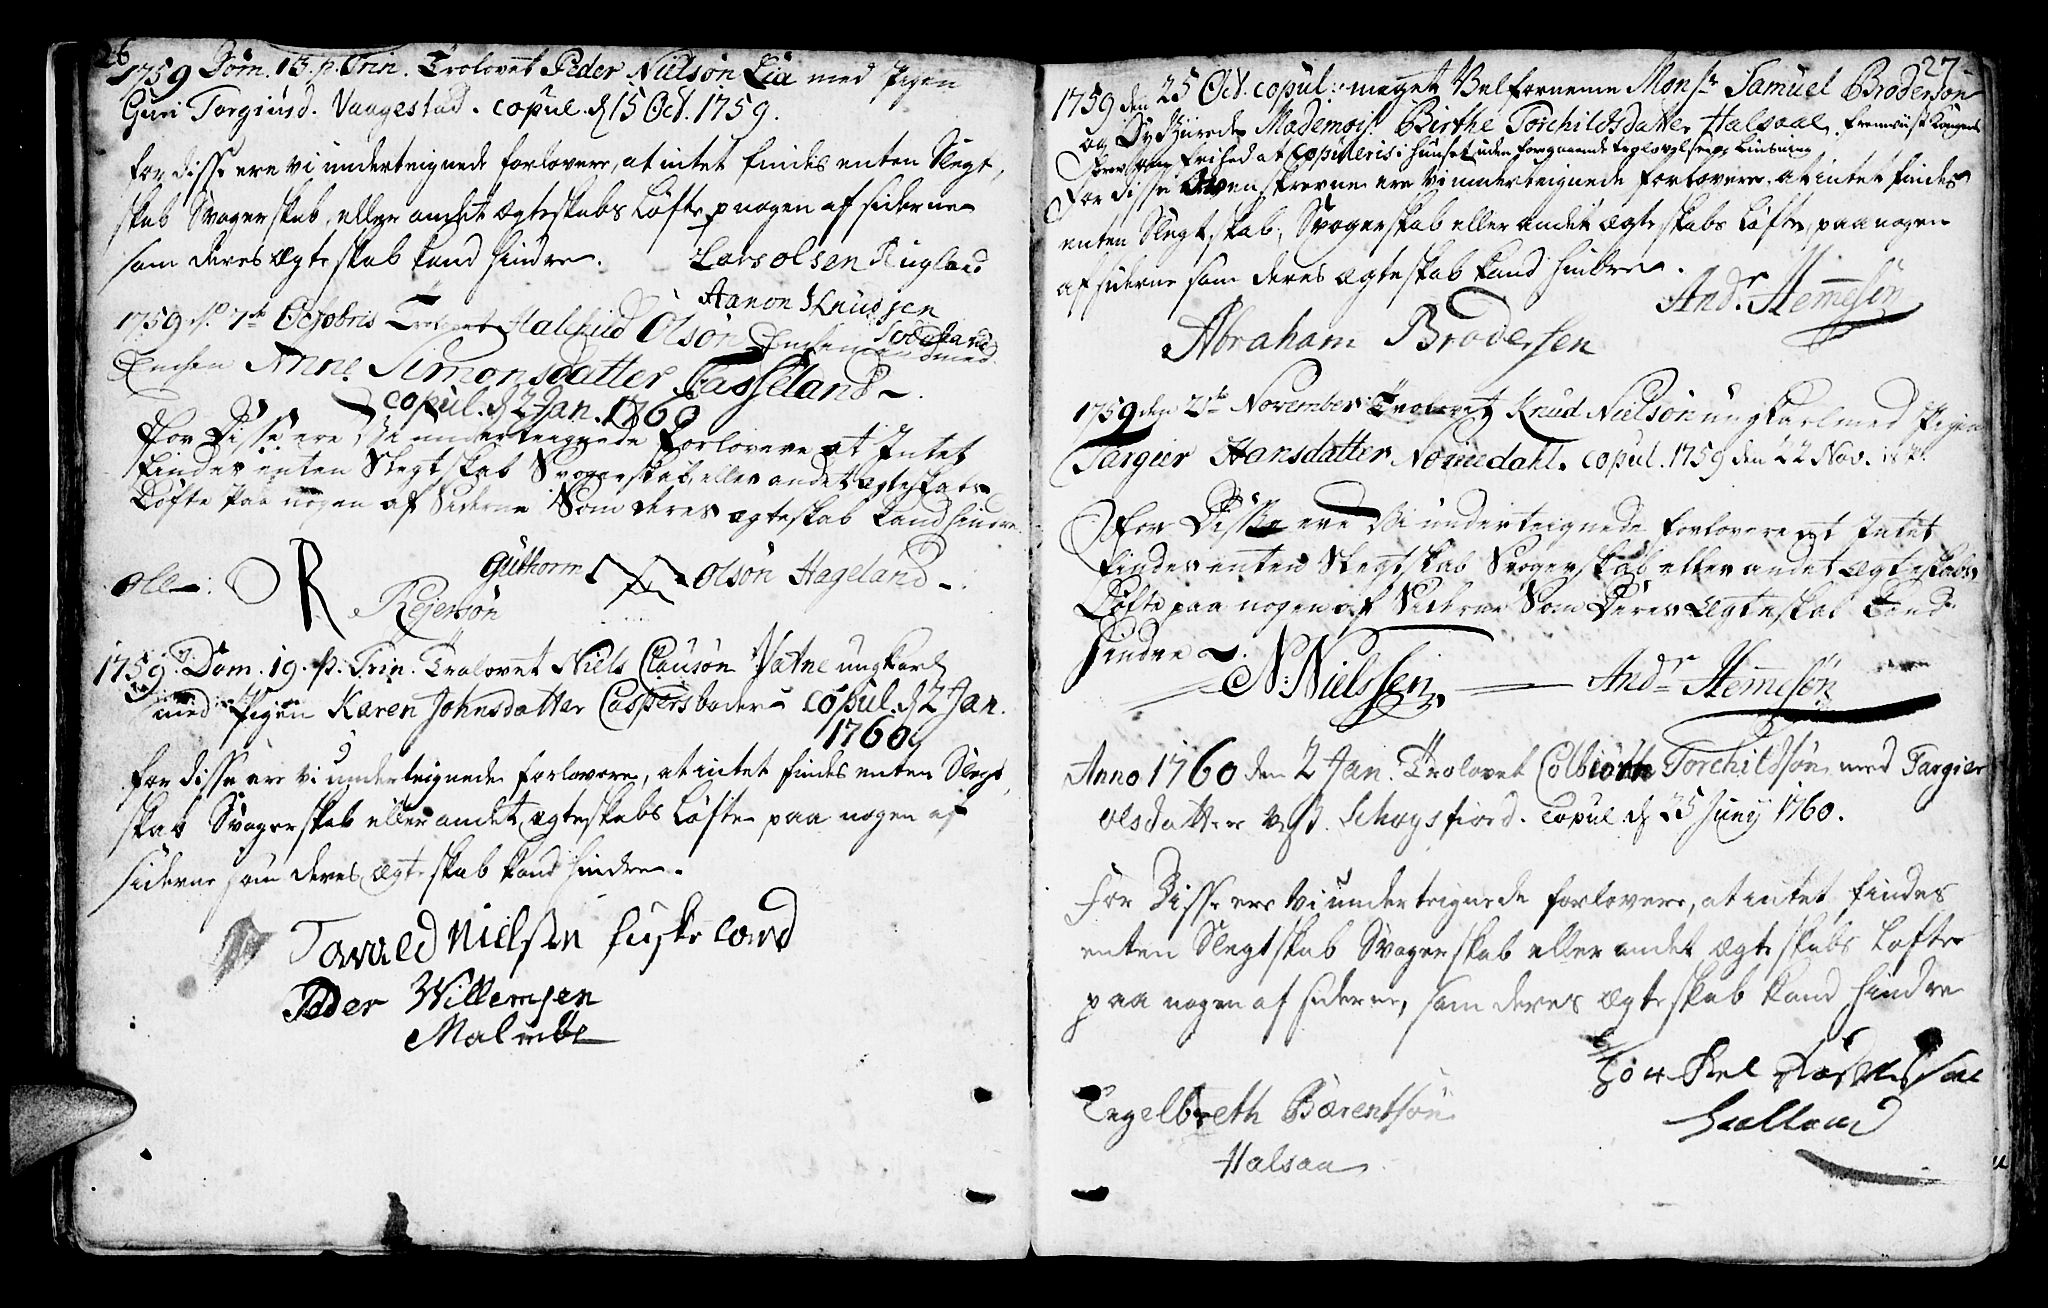 26
1759 Dom. 15. p. Trin. Trolovet Peder Nielsøn Lia med Pigen
Guri Torgiusd. Vaagestad. copul. d 15 Oct. 1759.
for disse ere vi underteignede forlovere, at intet findes enten Slegt,
skab Svogerskab, eller andet Ægteskabs Løfte p nogen af siderne
som deres Ægteskab kand hindre.
Lars olsen Kugland
Aanon Knudsen
1759 d. 7de Octobris Trolovet Halvuid Olsøn Enkemand med
Enchen Anne Simonsdatter Fasseland
copul. d 2 Jan. 1760
For Disse ere Vi underteignede Forlovere at Intet
Findes enten Slegtskab Svogerskab eller andet Ægteskabs
Løfte Paa nogen af Siderne Som deres Ægteskab Kand hindre
Olle OR Rejersøn
Guthorm Olsøn Hageland
1759 Dom. 19. p. Trin. Trolovet Niels Clausøn Vatne ungkarl
med Pigen Karen Johnsdatter Caspersbader copul. d 2 Jan.
1760
for disse ere vi underteignede forlovere, at intet findes enten Slegt,
skab Svogerskab eller andet Ægteskabs Løfte paa nogen af
siderne som deres Ægteskab kand hindre.
Tarald Nielsen fuskeland
Peder Willemsen
Malmbe
27
1759 den 25 Oct. copul: meget Velfornemme Monsr Samuel Brodersøn
og Dydziirede Mademois. Birthe Torchildsdatter Halsaae, fremviist Kongens
Brev om Frihed at copuleris i Huuset uden foregaaende Troelovelse og Liusning
For disse Ovenskrevne ere vi underteignede forlovere, at intet findes
enten Slegtskab, Svogerskab eller andet Ægteskabs Løfte, paa nogen
af siderne som deres Ægteskab kand hindre.
Andr. Hemesøn
Abraham Brodersen
1759 den 2de November Trolovet Knud Nielsøn ungkarl med Pigen
Targier Hansdatter Nomedahl. copul. 1759 den 22 Nov.
For Disse ere Vi underteignede forlovere at Intet
findes enten Slegtskab Svogerskab eller andet Ægteskabs
Løfte paa nogen af Siderne Som Deres Ægteskab Kand
Hindre
N: Nielssen Andr Hemesøn
Anno 1760 den 2 Jan. Trolovet Colbiørn Torchildsøn med Targier
olsdatter Schogsfiord. copul d 25 Junij 1760.
For Disse ere Vi underteignede forlovere, at intet findes
enten Slegtskab Svogerskab eller andet Ægteskabs Løfte
paa nogen af siderne, som deres Ægteskab kand hindre
Torkel
Engelbreth Bærentsøn
Halsaa